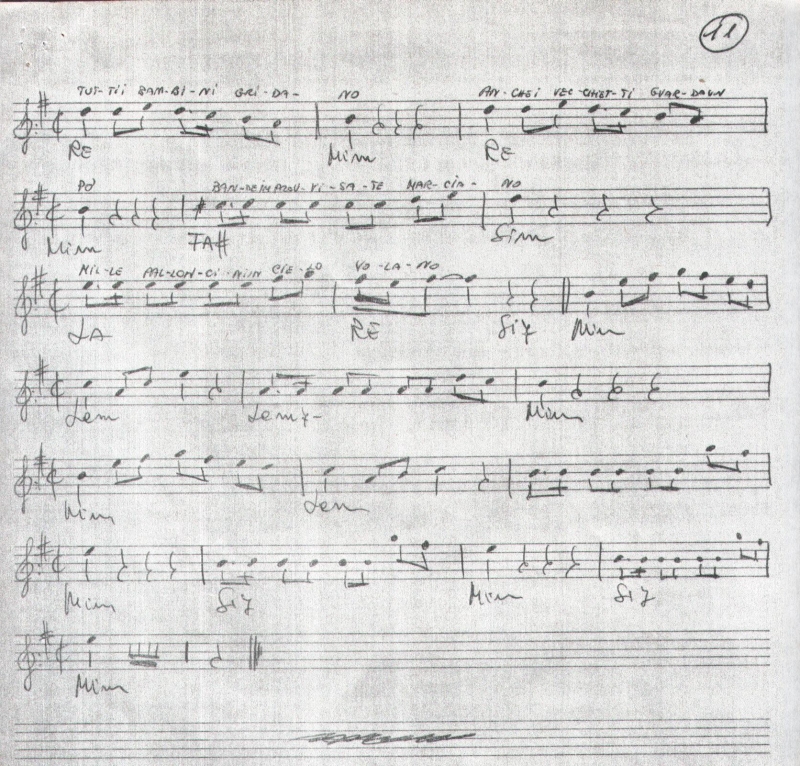 11
TUT-TII BAM-BI-NI GRI-DA-NO AN-CHEI VEC-CHIET-TI GUAR-DAUN
RE Mim RE
PÒ BAN-DEIMPROV-VI-SA-TE MAR-CIA-NO
Mim FA# Sim
MIL-LE PAL-LON-CI-NIIN CIE-LO VO-LA-NO
LA RE Si7 Mim
Lam Lam7- Mim
Mim Lam
Mim Si7 Mim Si7
Mim